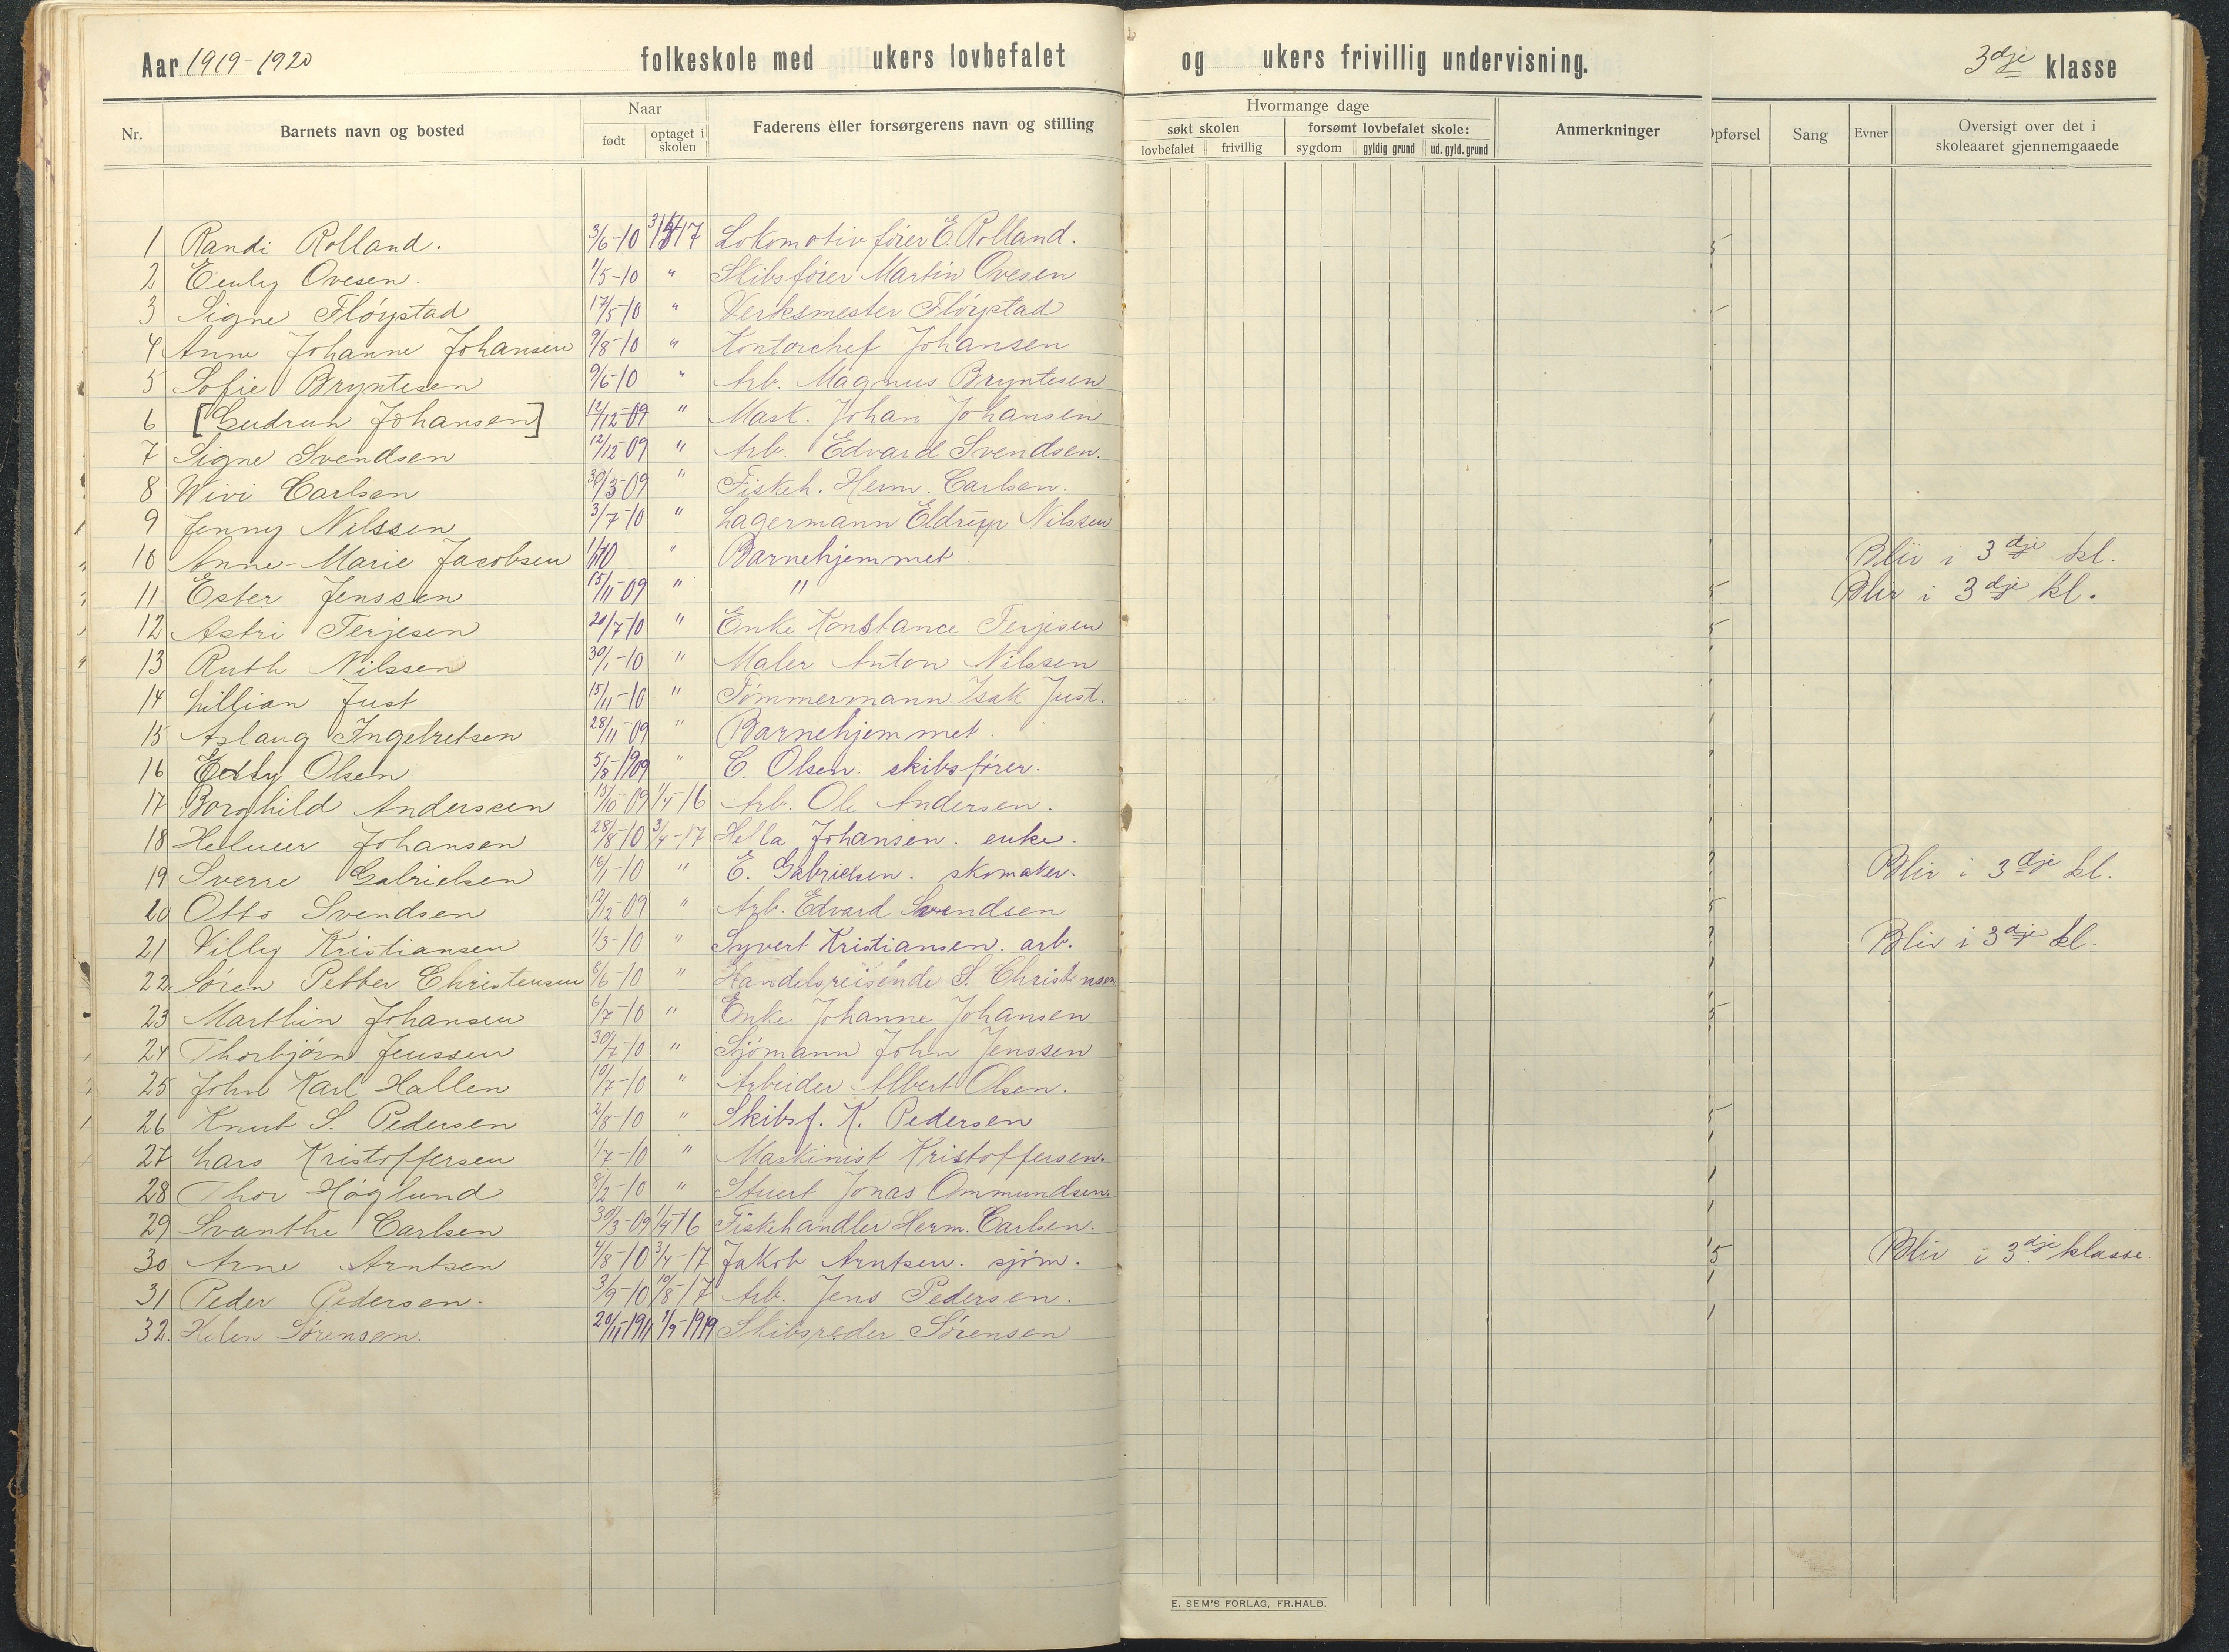 Aar 1919-1920 folkeskole med ukers lovbefalet og ukers frivillig undervisning. 3dje klasse
Nr. Barnets navn og bosted Naar født optaget i skolen Faderens eller forsørgerens navn og stilling Hvormange dage søkt skolen lovbefalet frivillig forsømt lovbefalet skole: sygdom gyldig grund ud. gyld. grund Anmerkninger Opførsel Sang Evner Oversigt over det i skoleaaret gjennemgaaede
1 Randi Rolland. 3/6-10 Lokomotivfører E. Rolland.
2 Emly Ovesen. 1/5-10 " Skibsfører Martin Ovesen
3 Signe Fløystad 17/5-10 " Verksmester Fløystad
4 Anne Johanne Johansen 9/8-10 " Kontorchef Johansen
5 Sofie Bryntesen 9/6-10 " Arb. Magnus Bryntesen
6 [Gudrun Johansen] 12/12-09 " Mask. Johan Johansen
7 Signe Svendsen 12/12-09 " Arb. Edvard Svendsen.
8 Wivi Carlsen 30/3-09 " Fiskeh. Herm. Carlsen.
9 Jenny Nilssen 3/7-10 " Lagermann Eldrup Nilssen
10 Anne-Marie Jacobsen " Barnehjemmet Bliv i 3dje kl.
11 Ester Jenssen 15/11-09 " " Bliv i 3dje kl.
12 Astri Terjesen 20/7-10 " Enke Konstance Terjesen
13 Ruth Nilssen 30/1-10 " Maler Anton Nilssen
14 Lillian Just 15/11-10 " Tømmermann Isak Just.
15 Aslaug Ingebretsen 28/11-09 " Barnehjemmet.
16 Edly Olsen 5/8-1909 " C. Olsen. skibsfører.
17 Borghild Anderssen 15/10-09 1/4-16 Arb. Ole Andersen.
18 Helmer Johansen 28/8-10 3/4-17 Hella Johansen. enke.
19 Sverre Gabrielsen 16/1-10 " E. Gabrielsen. skomaker. Bliv i 3dje kl.
20 Otto Svendsen 12/12-09 " Arb. Edvard Svendsen
21 Villy Kristiansen 1/3-10 " Syvert Kristiansen. arb. Bliv i 3dje kl.
22 Søren Petter Christensen 8/6-10 " Handelsreisende S. Christensen
23 Marthin Johansen 6/7-10 " Enke Johanne Johansen
24 Thorbjørn Jenssen 30/7-10 " Sjømann John Jenssen
25 John Karl Hallen 10/7-10 " Arbeider Albert Olsen.
26 Knut S. Pedersen 2/8-10 " Skibsf. K. Pedersen
27 Lars Kristoffersen 1/7-10 " Maskinist Kristoffersen.
28 Thor Høglund 8/2-10 " Stuert Jonas Ommundsen.
29 Svanthe Carlsen 30/3-09 1/4-16 Fiskehandler Herm. Carlsen.
30 Arne Arntsen 4/8-10 3/4-17 Jakob Arntsen. sjøm. 5 Bliv i 3dje klasse.
31 Peder Pedersen. 3/9-10 10/8-17 Arb. Jens Pedersen.
32. Helen Sørensen. 20/11-1911 1/9-1919 Skibsreder Sørensen
E. SEM'S FORLAG, FR.HALD.